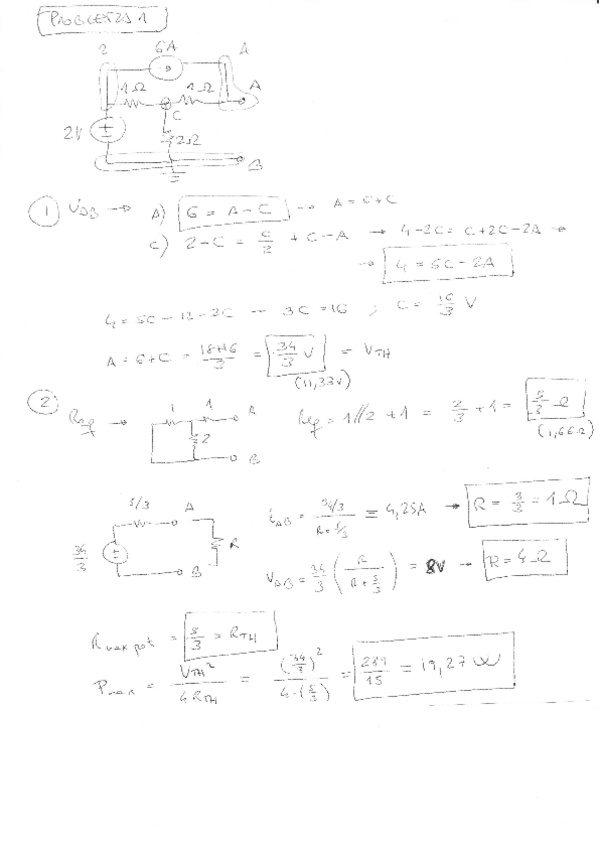 PROBLEMA 1
2 6A A
1Ω 1Ω A
C
2V 2Ω
B
① V_AB → A) 6 = A - C → A = 6 + C
C) 2 - C = C/2 + C - A → 4 - 2C = C + 2C - 2A →
→ 4 = 5C - 2A
4 = 5C - 12 - 2C → 3C = 16 ; C = 16/3 V
A = 6 + C = 18+16/3 = 34/3 V = V_TH
(11,33V)
② Req → 1 1 A Req = 1//2 + 1 = 2/3 + 1 = 5/3 Ω
2 (1,66Ω)
B
5/3 A i_AB = 34/3 / R + 5/3 = 4,25A → R = 3/3 = 1Ω
34/3 R
B V_AB = 34/3 (R / R + 5/3) = 8V → R = 4Ω
R max pot = 5/3 = R_TH
P max = V_TH² / 4 R_TH = (34/3)² / 4·(5/3) = 289/15 = 19,27 W